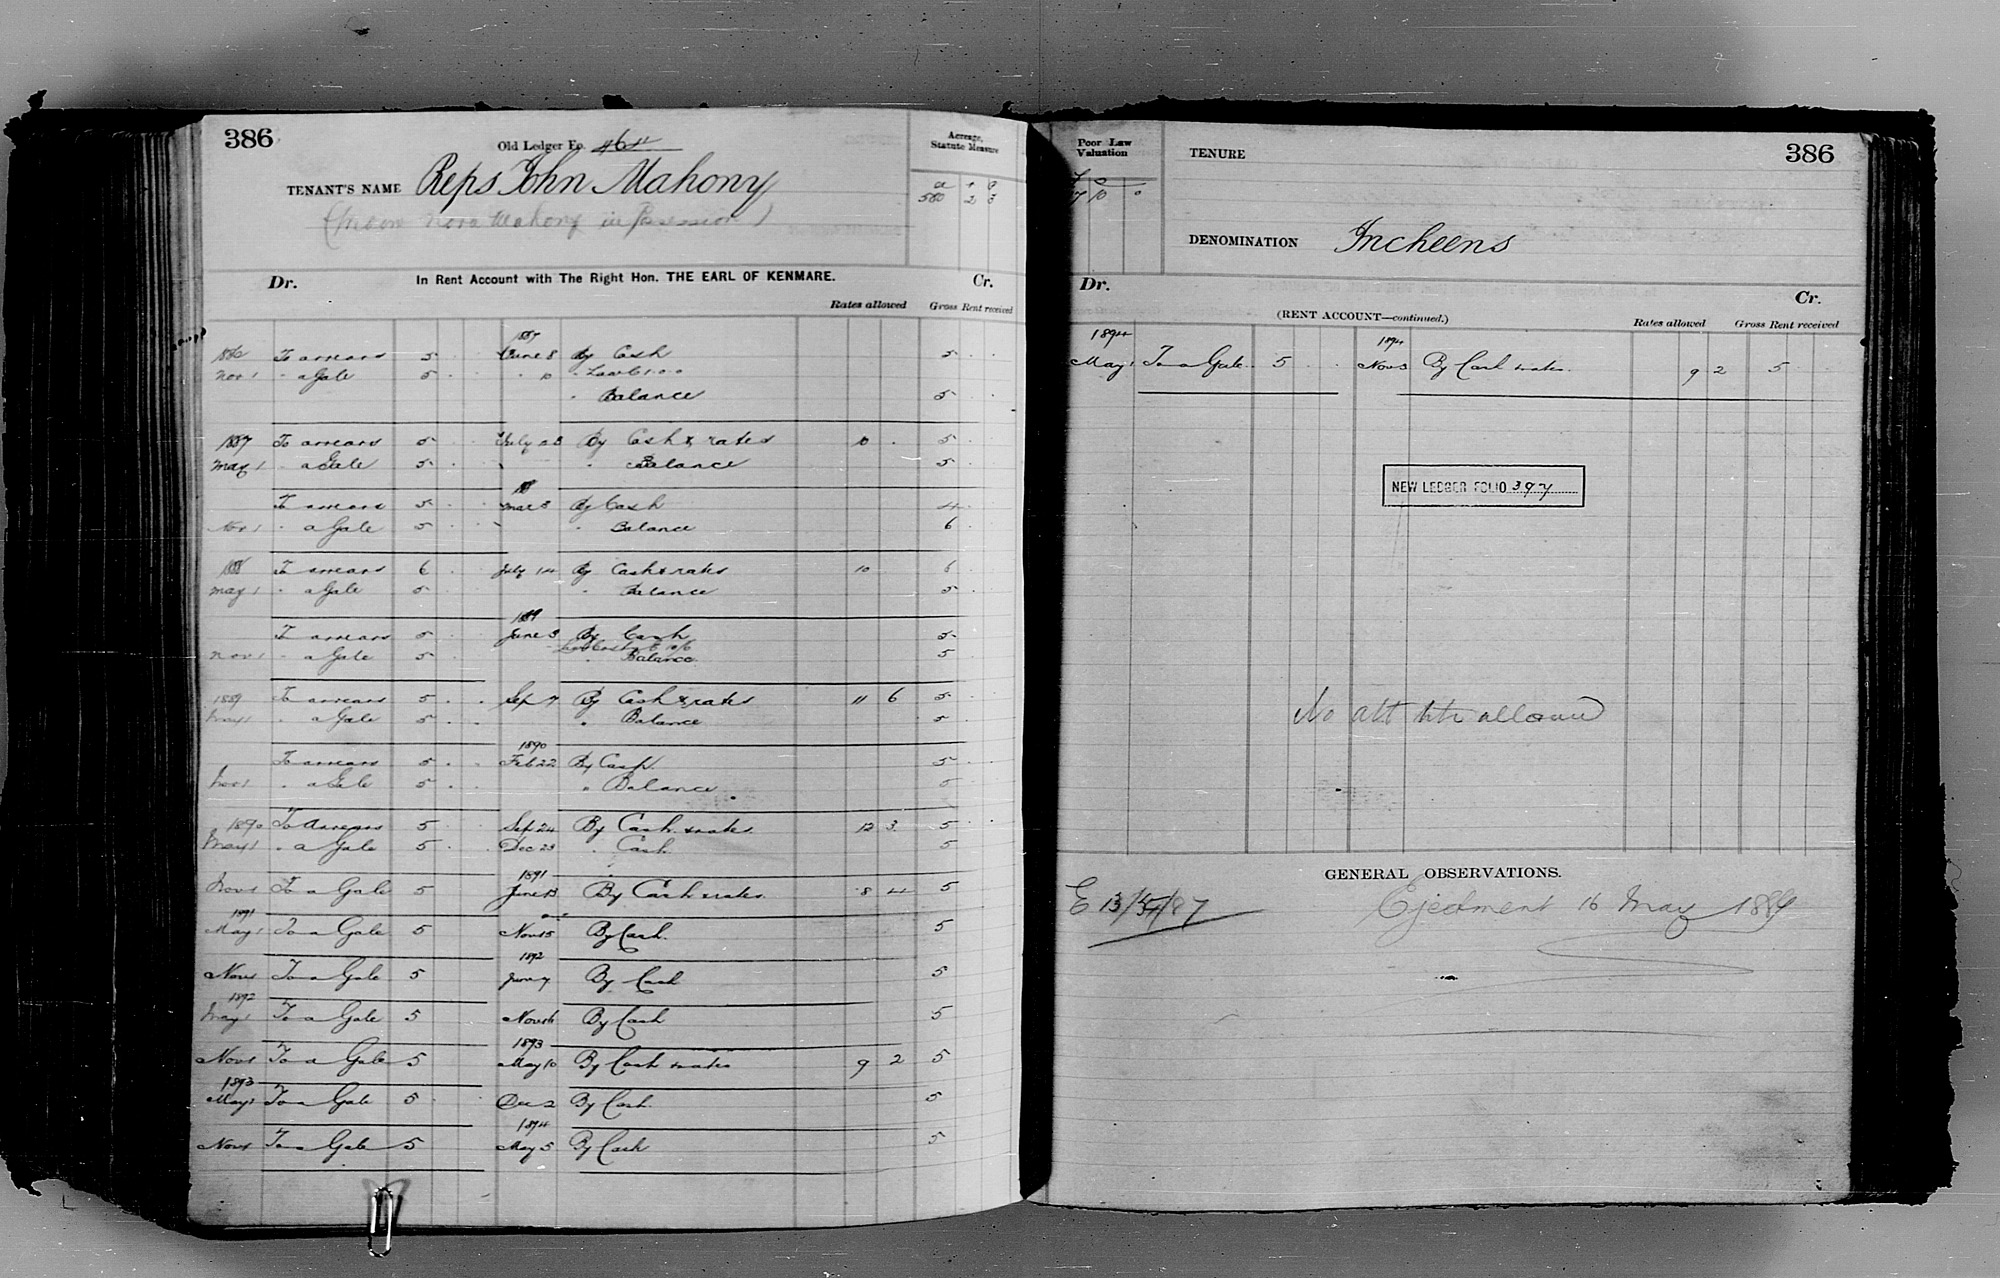 386
Old Ledger Fo. 464
TENANT'S NAME Reps John Mahony
(Widow Nora Mahony in Possession)
Acreage, Statute Measure
a r p
580 2 3
Dr. In Rent Account with The Right Hon. THE EARL OF KENMARE. Cr.
Rates allowed Gross Rent received
1887
1886 To arrears 5 June 8 By Cash 5
Nov 1 " a Gale 5 " 10 " Law 61.0.0
" Balance 5
1887 To arrears 5 July 23 By Cash & rates 10 5
May 1 " a Gale 5 " Balance 5
88
To arrears 5 Mar 3 By Cash 4
Nov 1 " a Gale 5 " Balance 6
1888 To arrears 6 July 14 By Cash & rates 10 6
May 1 " a Gale 5 " Balance 5
1889
To arrears 5 June 3 By Cash 5
Nov 1 " a Gale 5 " Balance 5
1889 To arrears 5 Sep 7 By Cash & rates 11 6 5
May 1 " a Gale 5 " Balance 5
1890
To arrears 5 Feb 22 By Cash 5
Nov 1 " a Gale 5 " Balance 5
1890 To Arrears 5 Sep 24 By Cash & rates 12 3 5
May 1 " a Gale 5 Dec 23 " Cash 5
1891
Nov 1 To a Gale 5 June 13 By Cash & rates 8 4 5
1891
May 1 To a Gale 5 Nov 15 By Cash 5
1892
Nov 1 To a Gale 5 June 7 By Cash 5
1892
May 1 To a Gale 5 Nov 16 By Cash 5
1893
Nov 1 To a Gale 5 May 10 By Cash & rates 9 2 5
1893
May 1 To a Gale 5 Dec 2 By Cash 5
1894
Nov 1 To a Gale 5 May 5 By Cash 5
Poor Law Valuation
7 10 0
TENURE
386
DENOMINATION Incheens
Dr. Cr.
(RENT ACCOUNT—continued.)
Rates allowed Gross Rent received
1894 1894
May 1 To a Gale 5 Nov 3 By Cash & rates 9 2 5
NEW LEDGER FOLIO 397
No abt allowed
GENERAL OBSERVATIONS.
E 13/5/87 Ejectment 16 May 1889